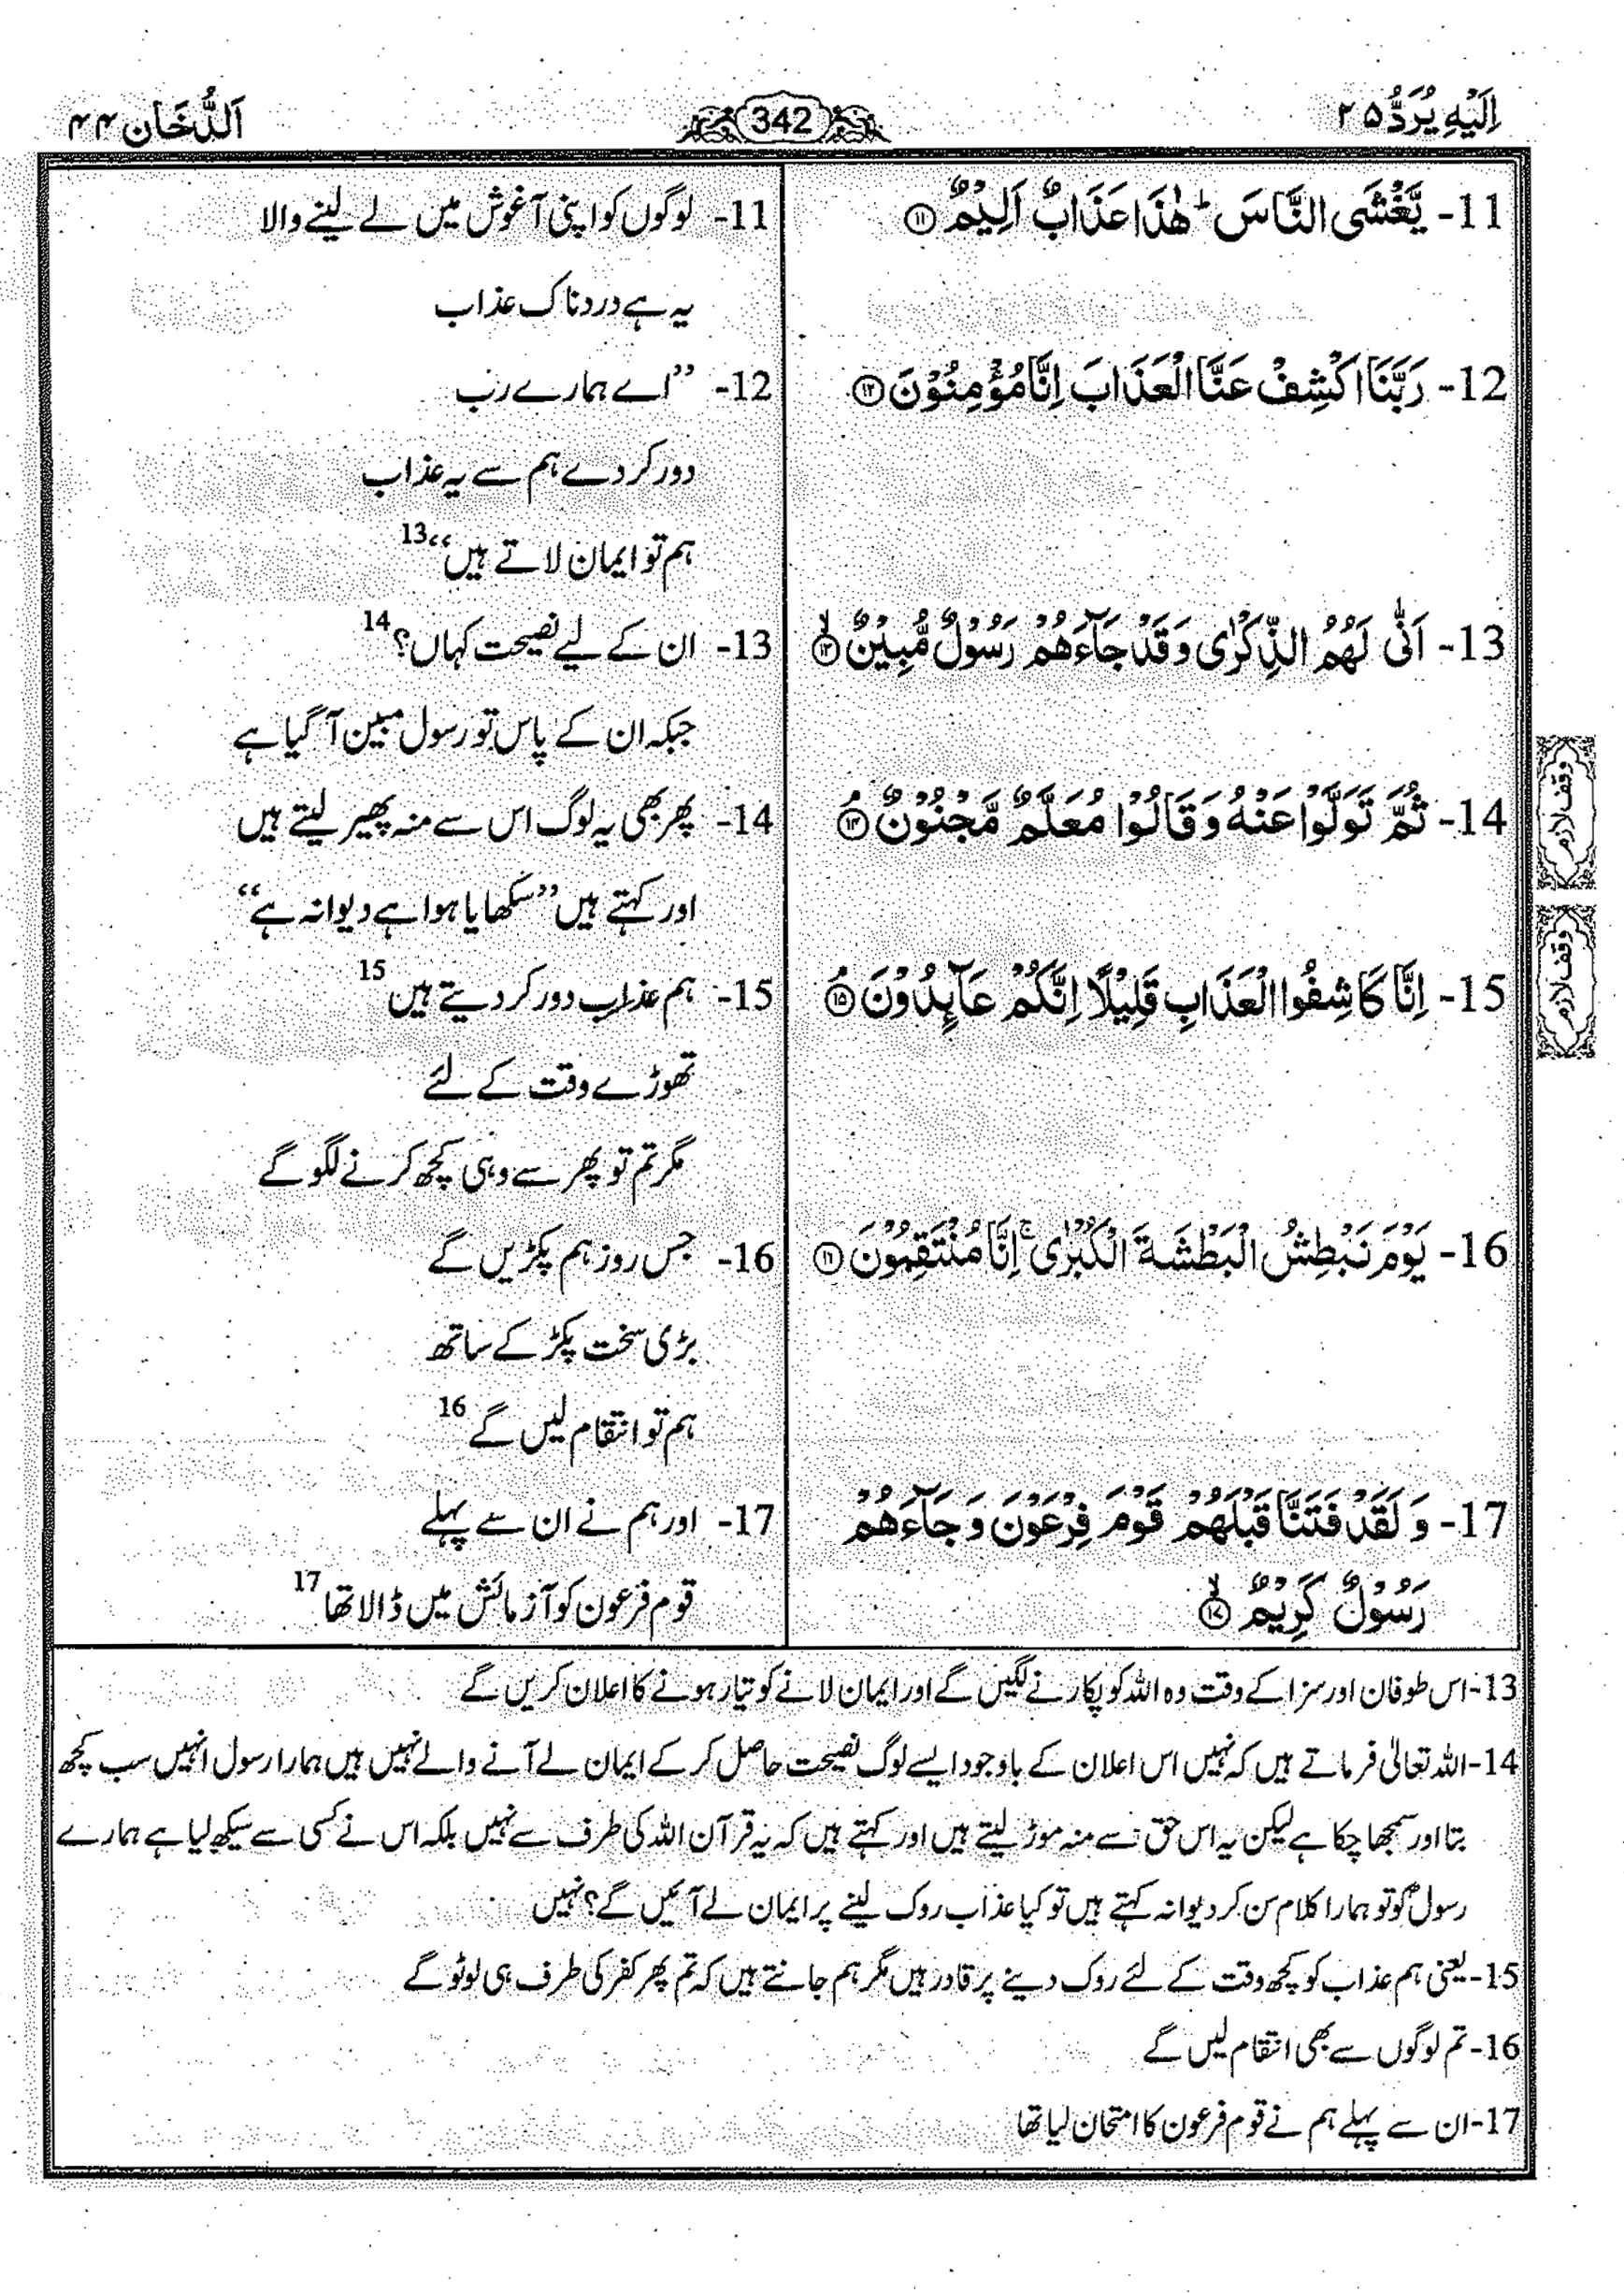 اِلَیْهِ یُرَدُّ ۲۵
342
اَلدُّخَان ۴۴
11- یَّغْشَی النَّاسَ ؕ هٰذَا عَذَابٌ اَلِیْمٌ ﴿۱۱﴾
12- رَبَّنَا اكْشِفْ عَنَّا الْعَذَابَ اِنَّا مُؤْمِنُوْنَ ﴿۱۲﴾
13- اَنّٰی لَهُمُ الذِّكْرٰی وَ قَدْ جَآءَهُمْ رَسُوْلٌ مُّبِیْنٌ ﴿ۙ۱۳﴾
14- ثُمَّ تَوَلَّوْا عَنْهُ وَ قَالُوْا مُعَلَّمٌ مَّجْنُوْنٌ ﴿ۘ۱۴﴾
15- اِنَّا كَاشِفُوا الْعَذَابِ قَلِیْلًا اِنَّكُمْ عَآئِدُوْنَ ﴿ۘ۱۵﴾
16- یَوْمَ نَبْطِشُ الْبَطْشَةَ الْكُبْرٰی ۚ اِنَّا مُنْتَقِمُوْنَ ﴿۱۶﴾
17- وَ لَقَدْ فَتَنَّا قَبْلَهُمْ قَوْمَ فِرْعَوْنَ وَ جَآءَهُمْ
رَسُوْلٌ كَرِیْمٌ ﴿ۙ۱۷﴾
وقف لازم
وقف لازم
11- لوگوں کو اپنی آغوش میں لے لینے والا
یہ ہے دردناک عذاب
12- ’’اے ہمارے رب
دور کر دے ہم سے یہ عذاب
ہم تو ایمان لاتے ہیں‘‘13
13- ان کے لیے نصیحت کہاں؟14
جبکہ ان کے پاس تو رسول مبین آ گیا ہے
14- پھر بھی یہ لوگ اس سے منہ پھیر لیتے ہیں
اور کہتے ہیں ’’سکھایا ہوا ہے دیوانہ ہے‘‘
15- ہم عذاب دور کر دیتے ہیں15
تھوڑے وقت کے لئے
مگر تم تو پھر سے وہی کچھ کرنے لگو گے
16- جس روز ہم پکڑیں گے
بڑی سخت پکڑ کے ساتھ
ہم تو انتقام لیں گے16
17- اور ہم نے ان سے پہلے
قوم فرعون کو آزمائش میں ڈالا تھا17
13-اس طوفان اور سزا کے وقت وہ اللہ کو پکارنے لگیں گے اور ایمان لانے کو تیار ہونے کا اعلان کریں گے
14-اللہ تعالیٰ فرماتے ہیں کہ نہیں اس اعلان کے باوجود ایسے لوگ نصیحت حاصل کر کے ایمان لے آنے والے نہیں ہیں ہمارا رسول انہیں سب کچھ
بتا اور سمجھا چکا ہے لیکن یہ اس حق سے منہ موڑ لیتے ہیں اور کہتے ہیں کہ یہ قرآن اللہ کی طرف سے نہیں بلکہ اس نے کسی سے سیکھ لیا ہے ہمارے
رسولؐ کو تو ہمارا کلام سن کر دیوانہ کہتے ہیں تو کیا عذاب روک لینے پر ایمان لے آئیں گے؟ نہیں
15-یعنی ہم عذاب کو کچھ وقت کے لئے روک دینے پر قادر ہیں مگر ہم جانتے ہیں کہ تم پھر کفر کی طرف ہی لوٹو گے
16-تم لوگوں سے بھی انتقام لیں گے
17-ان سے پہلے ہم نے قوم فرعون کا امتحان لیا تھا